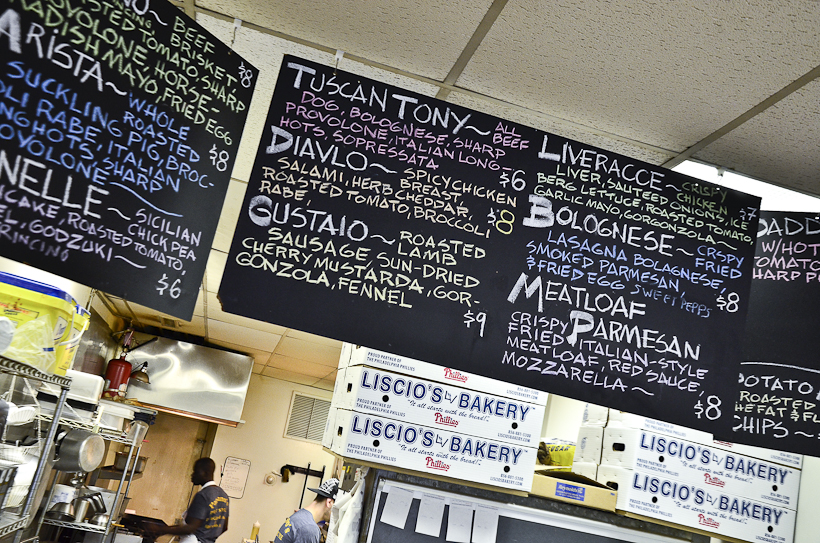 BEEF
BRISKET
ROASTED TOMATO, SHARP
PROVOLONE, HORSE-
RADISH MAYO, FRIED EGG
$8
ARISTA~ WHOLE
SUCKLING ROASTED
PIG, BROC-
OLI RABE, ITALIAN
LONG HOTS, SHARP
PROVOLONE
$8
NELLE~ SICILIAN
CHICK PEA
CAKE, ROASTED TOMATO,
GODZUKI~
$6
TUSCAN TONY~ ALL
BEEF
DOG, BOLOGNESE, SHARP
PROVOLONE, ITALIAN LONG
HOTS, SOPRESSATA
$6
DIAVLO~ SPICY CHICKEN
SALAMI, HERB CHEDDAR, BREAST,
ROASTED TOMATO, BROCCOLI
RABE
$8
GUSTAIO~ ROASTED
LAMB
SAUSAGE, SUN-DRIED
CHERRY MUSTARDA, GOR-
GONZOLA, FENNEL
$9
LIVERACCE~ CRISPY
CHICKEN $7
LIVER, SAUTEED ONIONS, ICE
BERG LETTUCE, ROASTED TOMATO,
GARLIC MAYO, GORGONZOLA~
BOLOGNESE~ CRSPY
FRIED
LASAGNA BOLOGNESE,
SMOKED PARMESAN
& FRIED EGG SWEET PEPPS
$8
MEATLOAF
PARMESAN
CRISPY
FRIED ITALIAN-STYLE
MEATLOAF, RED SAUCE,
MOZZARELLA~
$8
W/HOT
TOMATO
SHARP
POTATO
CHIPS~
PROUD PARTNER OF
THE PHILADELPHIA PHILLIES
Phillies
LISCIO'S BAKERY
"It all starts with the bread!"
PROUD PARTNER OF
THE PHILADELPHIA PHILLIES
Phillies
LISCIO'S BAKERY
"It all starts with the bread!"
Phillies
LISCIO'S BAKERY
"It all starts with the bread!"
Phillies
LISCIO'S BAKERY
"It all starts with the bread!"
Phillies
Reynolds